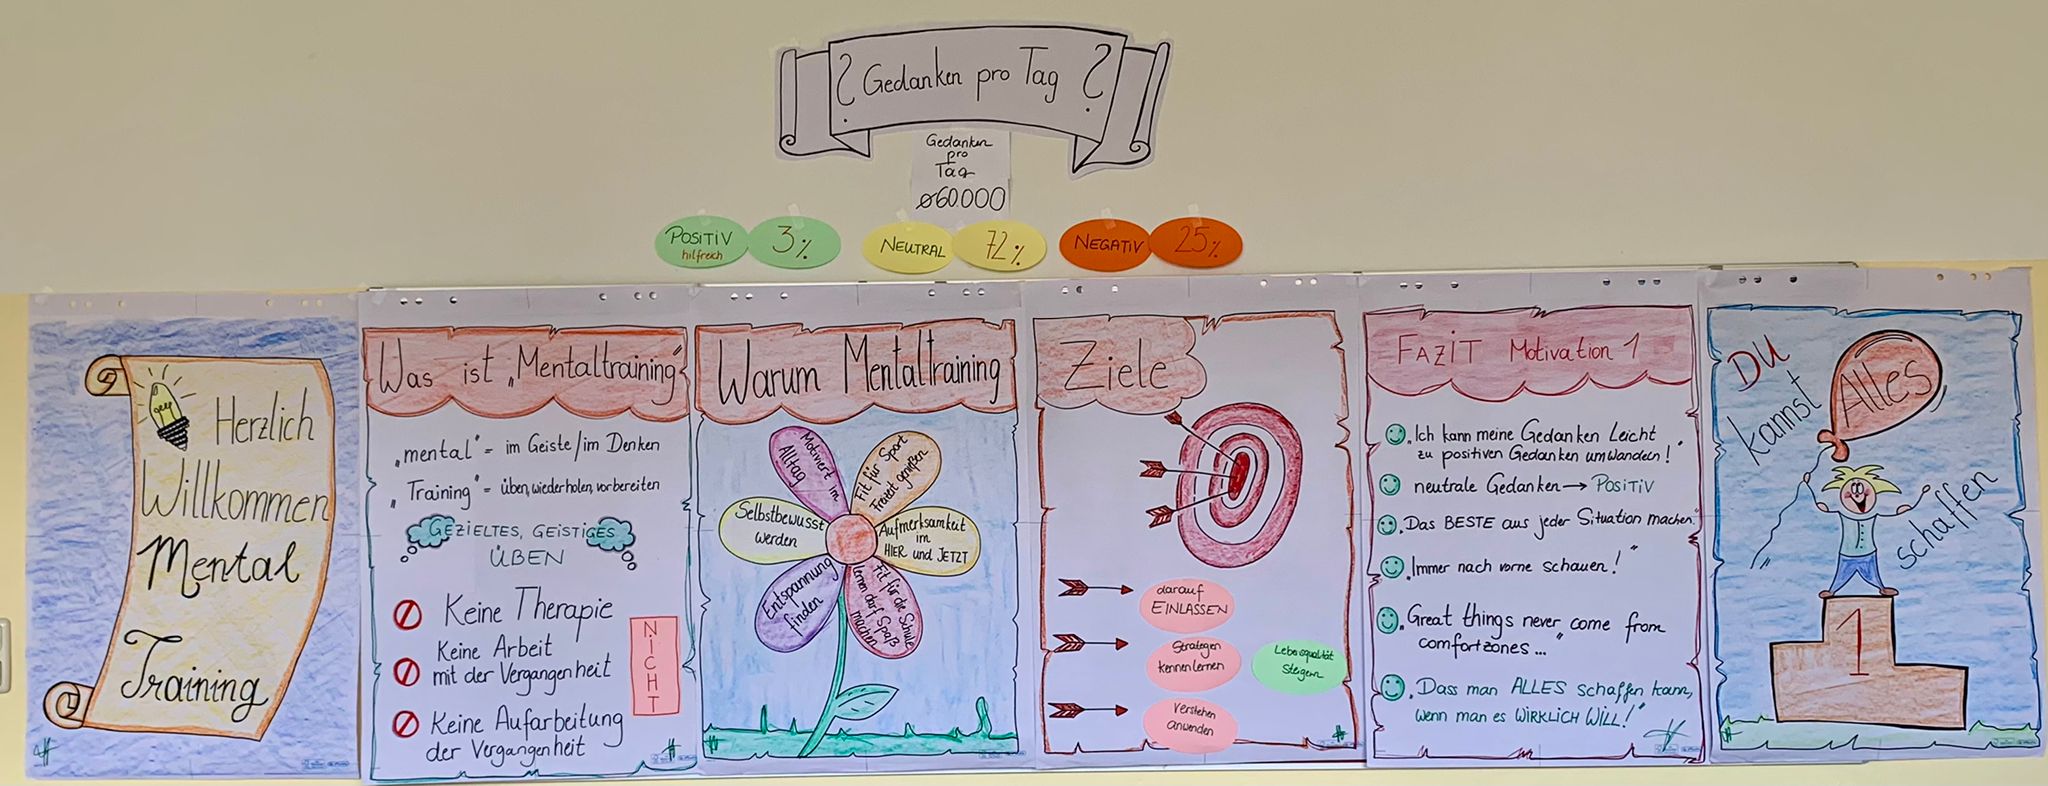 ? Gedanken pro Tag ?
Gedanken
pro
Tag
ø60.000
POSITIV
hilfreich
3%
NEUTRAL
72%
NEGATIV
25%
Herzlich
Willkommen
Mental
Training
Was ist „Mentaltraining"
„mental" = im Geiste/im Denken
„Training" = üben, wiederholen, vorbereiten
GEZIELTES, GEISTIGES
ÜBEN
Keine Therapie
Keine Arbeit
mit der Vergangenheit
Keine Aufarbeitung
der Vergangenheit
NICHT
Warum Mentaltraining
Motiviert im
Alltag
Fit für Sport
Freizeit genießen
Selbstbewusst
werden
Aufmerksamkeit
im
HIER und JETZT
Entspannung
finden
Fit für die Schule
lernen darf Spaß
machen
Ziele
darauf
EINLASSEN
Strategien
kennenlernen
Lebensqualität
steigern
Verstehen
anwenden
FAZIT Motivation 1
„Ich kann meine Gedanken Leicht
zu positiven Gedanken umwandeln!"
neutrale Gedanken → POSITIV
„Das BESTE aus jeder Situation machen"
„Immer nach vorne schauen!"
„Great things never come from
comfortzones..."
„Dass man ALLES schaffen kann,
wenn man es WIRKLICH WILL!"
DU
kannst
Alles
schaffen
1